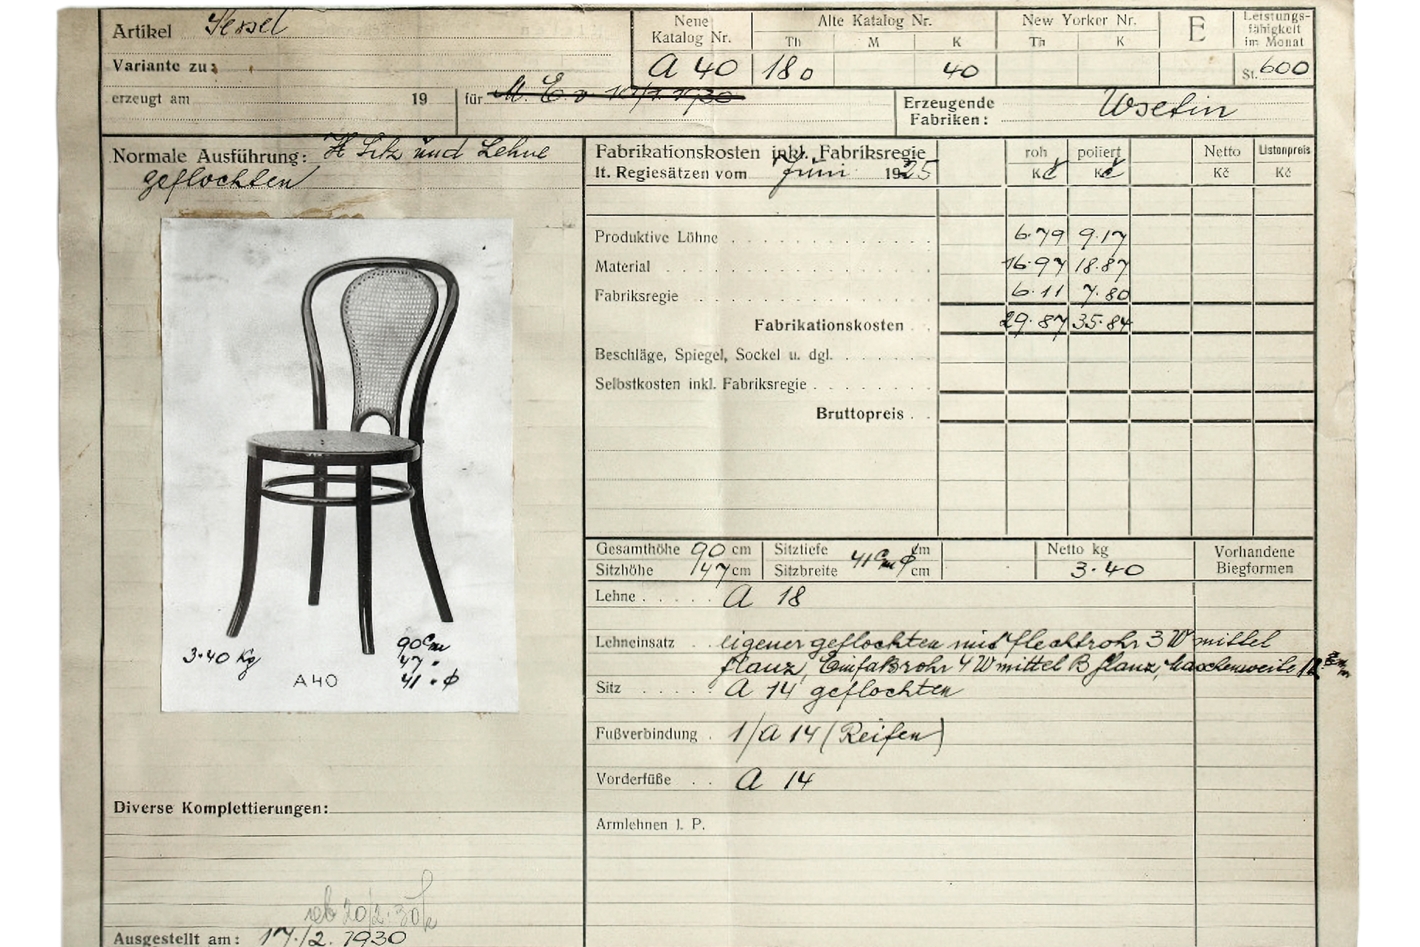 Artikel Sessel
Neue Katalog Nr. A 40
Alte Katalog Nr.
Th M K
180 40
New Yorker Nr.
Th K
E
Leistungs-
fähigkeit
im Monat
St. 600
Variante zu:
erzeugt am 19 für
Erzeugende
Fabriken: Wsetin
Normale Ausführung: Sitz und Lehne
geflochten
3·40 Kg
A40
90 cm
47 "
41 " φ
Diverse Komplettierungen:
ab 20/2. 30
Ausgestellt am: 17./2. 1930
Fabrikationskosten inkl. Fabriksregie
lt. Regiesätzen vom Juni 1925
roh poliert Netto Listenpreis
Kč Kč Kč Kč
Produktive Löhne 6·79 9·17
Material 16·97 18·87
Fabriksregie 6·11 7·80
Fabrikationskosten 29·87 35·84
Beschläge, Spiegel, Sockel u. dgl.
Selbstkosten inkl. Fabriksregie
Bruttopreis
Gesamthöhe 90 cm Sitztiefe cm Netto kg Vorhandene
Sitzhöhe 47 cm Sitzbreite 41 cm φ cm 3·40 Biegformen
Lehne A 18
Lehneinsatz eigener geflochten mit Flechtrohr 3 W mittel
Glanz, Einfaßrohr 4 W mittel B Glanz, Maschenweite 12
Sitz A 14 geflochten
Fußverbindung 1/A 14 (Reifen)
Vorderfüße A 14
Armlehnen l. P.